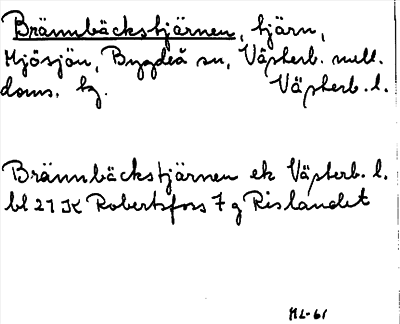 Brännbäckstjärnen, tjärn,
Mjösjön, Bygdeå sn, Västerb. mell.
doms. hg. Västerb. l.
Brännbäckstjärnen ek Västerb. l.
bl 21 K Robertsfors 7 g Rislandet
ML-61